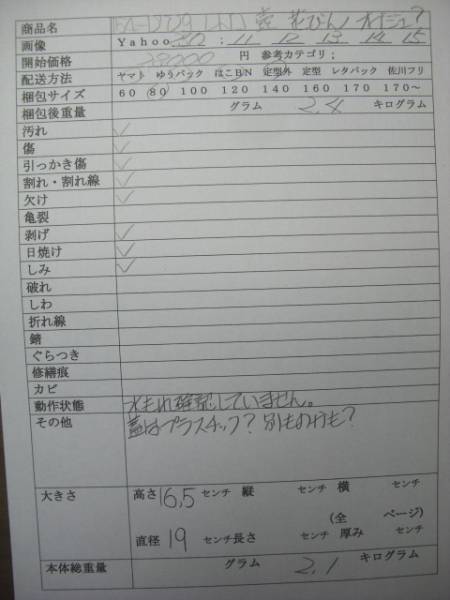 商品名 花びん / ?
画像 Yahoo 11 12 13 14 15
開始価格 28000 円 参考カテゴリ;
配送方法 ヤマト ゆうパック はこBN 定型外 定型 レタパック 佐川フリ
梱包サイズ 60 80 100 120 140 160 170 170～
梱包後重量 グラム 2.4 キログラム
汚れ ✓
傷 ✓
引っかき傷 ✓
割れ・割れ線 ✓
欠け ✓
亀裂
剥げ ✓
日焼け ✓
しみ ✓
破れ
しわ
折れ線
錆
ぐらつき
修繕痕
カビ
動作状態 水もれ確認していません。
その他 蓋はプラスチック?別ものかも?
大きさ 高さ 16,5 センチ 縦 センチ 横 センチ
(全 ページ)
直径 19 センチ長さ センチ 厚み センチ
本体総重量 グラム 2.1 キログラム